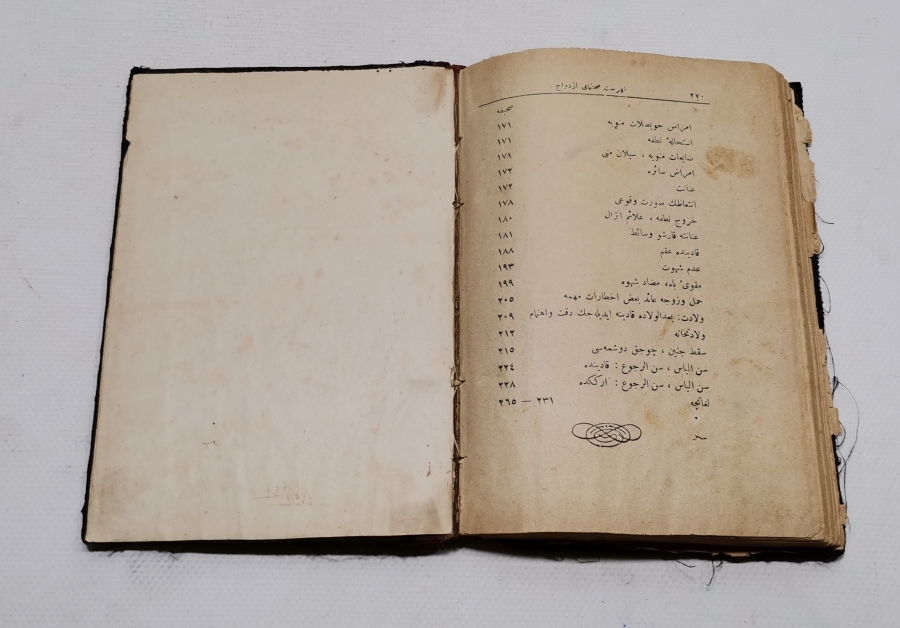 ٢٧٠ فهرست صحنهای ازدواج
صحیفه
امراض حویصلات منویه ١٧١
استحالهٔ نطفه ١٧١
ضایعات منویه ، سیلان منی ١٧١
امراض سائره ١٧٢
عنانت ١٧٢
انتعاظك صورت وقوعی ١٧٨
خروج نطفه ، علائم انزال ١٨٠
عنانته قارشو وسائط ١٨١
قادینده عقم ١٨٨
عدم شهوت ١٩٣
مقویٔ باه، مضاد شهوه ١٩٩
حمل وزوجه عائد بعض اخطارات مهمه ٢٠٥
ولادت: بعدالولاده قادینه ایدیله‌جك دقت واهتمام ٢٠٩
ولادتخانه ٢١٢
سقط جنین ، چوجق دوشمه‌سی ٢١٥
سن الیاس ، سن الرجوع : قادینده ٢٢٤
سن الیاس ، سن الرجوع : ارككده ٢٢٨
لغاتچه ٢٣١ — ٢٦٥